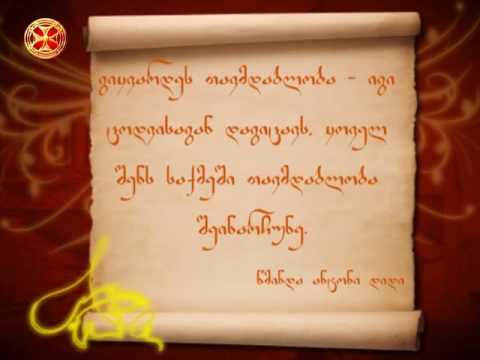 გიყვარდეს თავმდაბლობა - იგი
ცოდვისაგან დაგიცავს, ყოველ
შენს საქმეში თავმდაბლობა
შეინარჩუნე.
წმინდა ანტონი დიდი